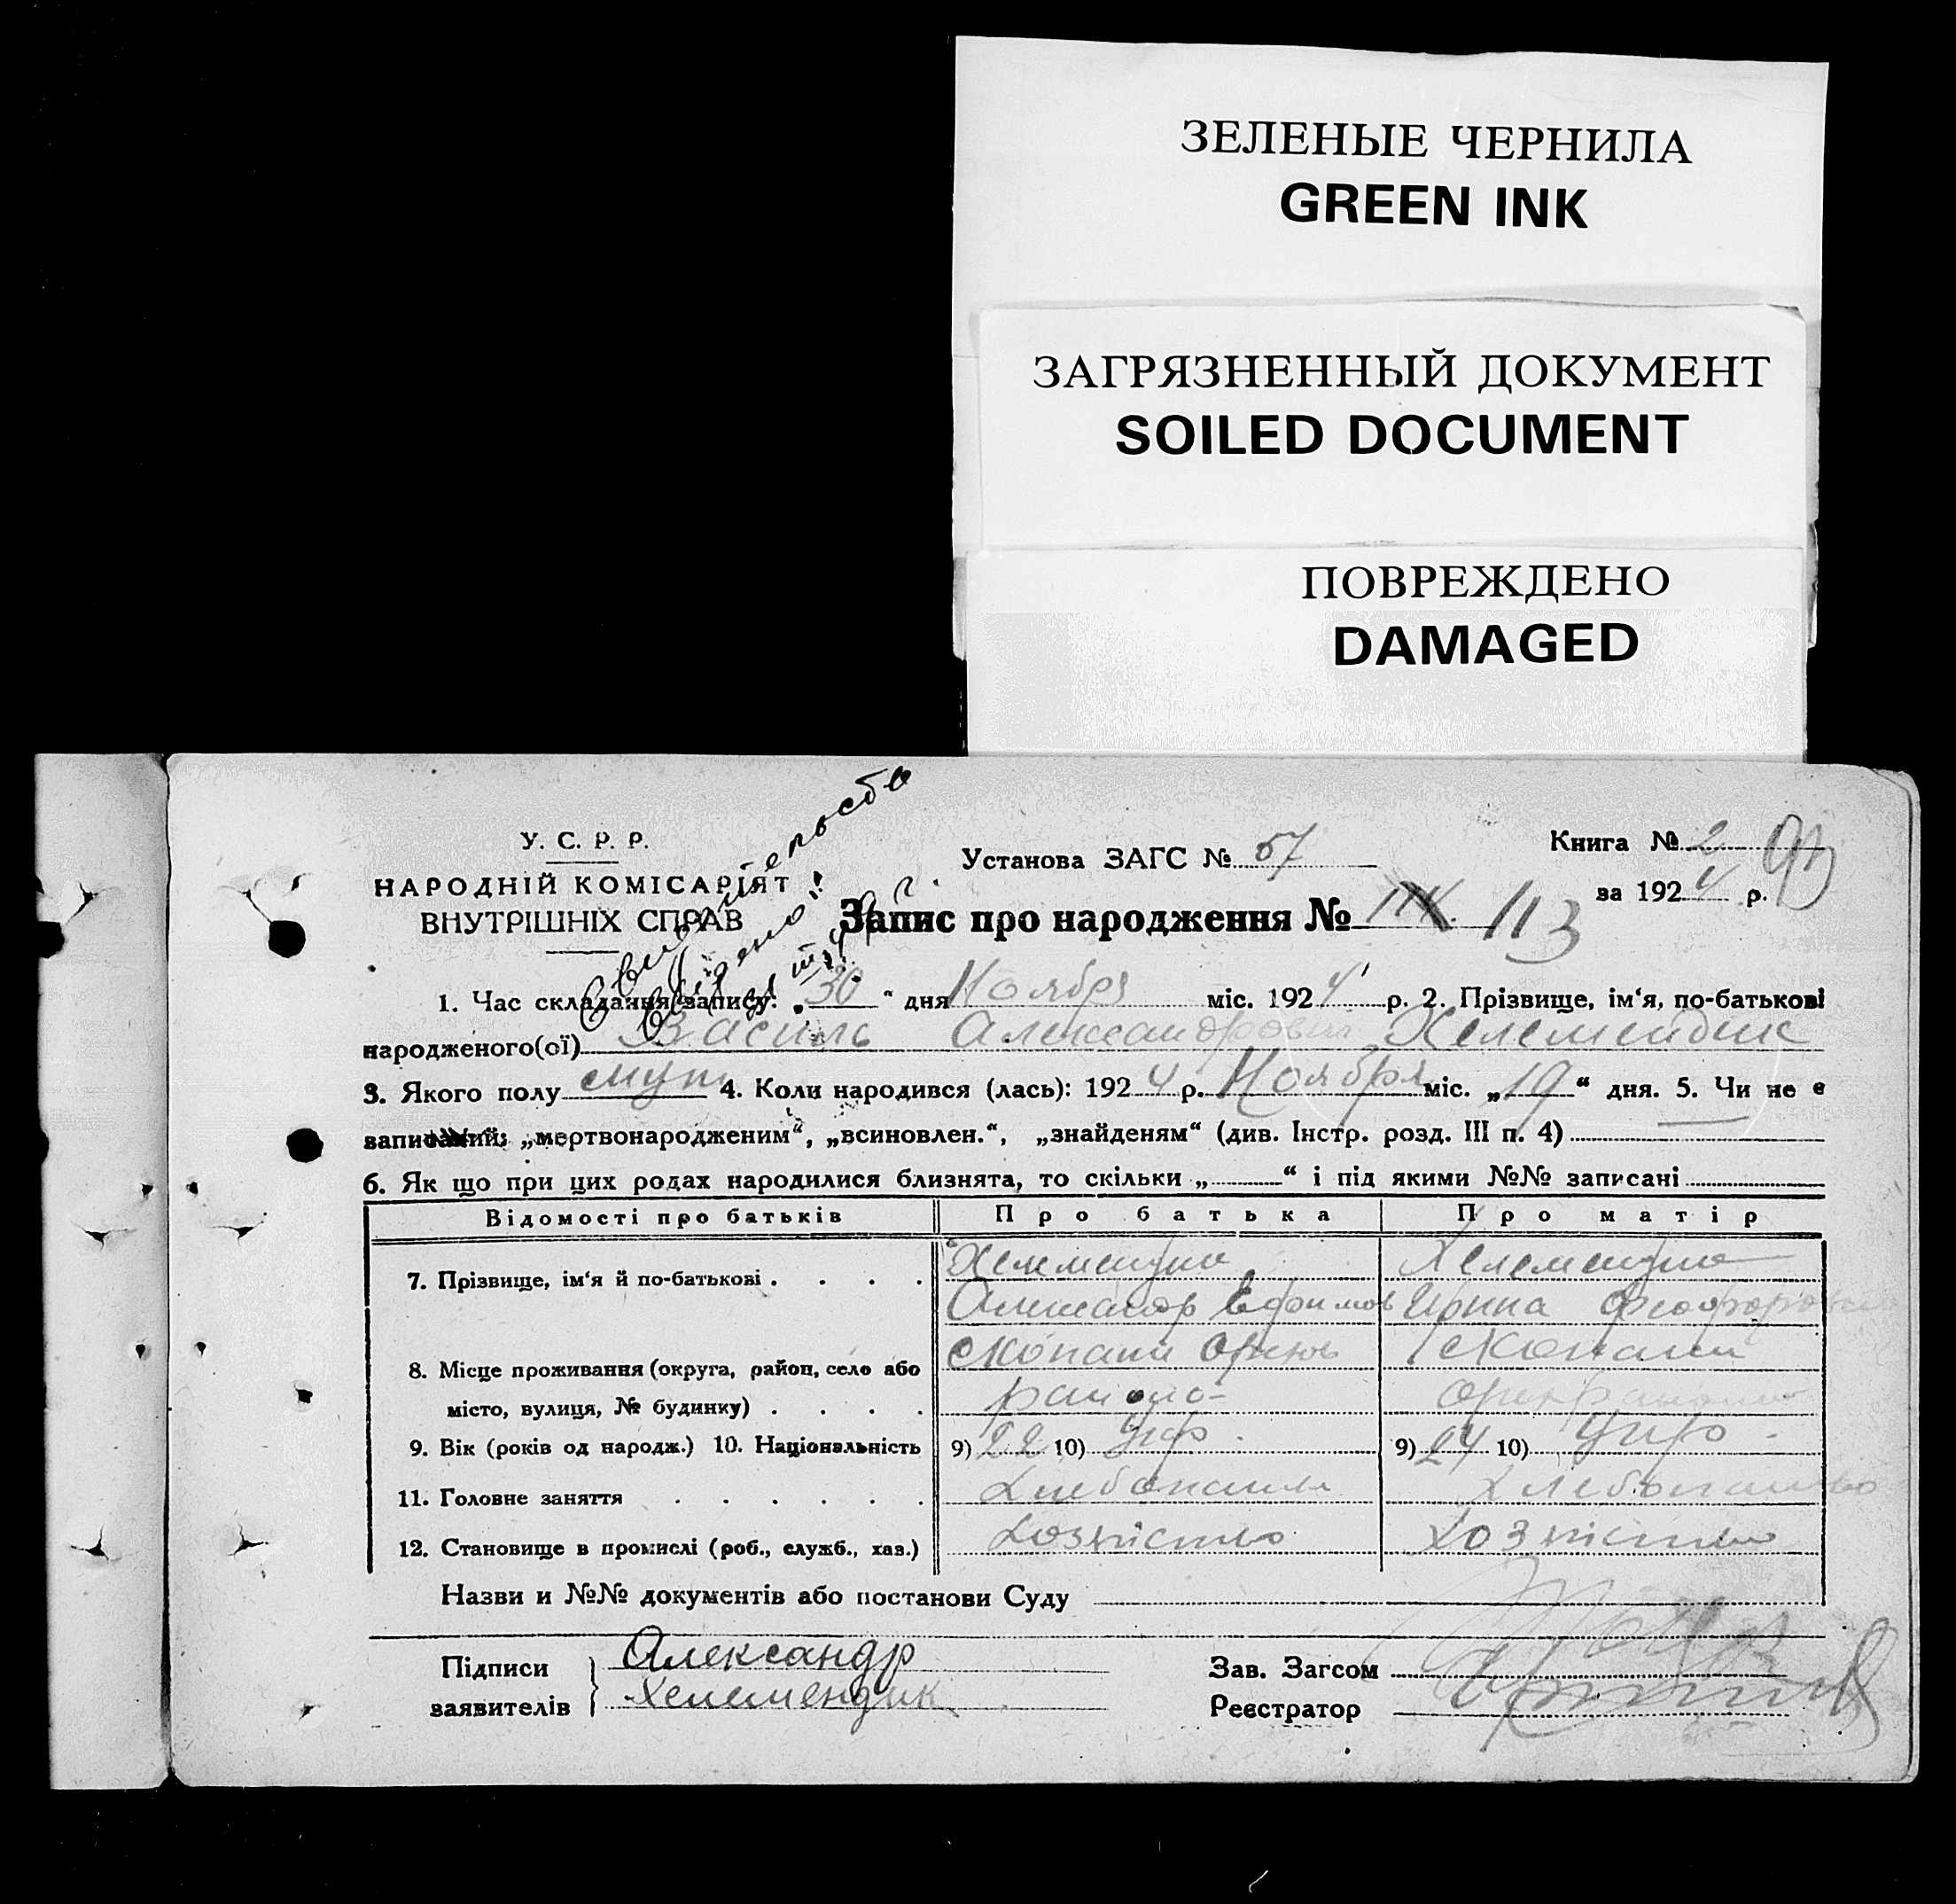 ЗЕЛЕНЫЕ ЧЕРНИЛА
GREEN INK
ЗАГРЯЗНЕННЫЙ ДОКУМЕНТ
SOILED DOCUMENT
ПОВРЕЖДЕНО
DAMAGED
У. С. Р. Р.
НАРОДНІЙ КОМІСАРІЯТ
ВНУТРІШНІХ СПРАВ
Установа ЗАГС № 57
Книга № 2
за 1924 р.
93
Запис про народження № 113
1. Час складання запису: „30“ дня Ноября міс. 1924 р. 2. Прізвище, ім‘я, по-батькові
народженого(ої) Василь Александрович Хелемендик
3. Якого полу муж 4. Коли народився (лась): 1924 р. Ноября міс. „19“ дня. 5. Чи не є
записаний: „мертвонародженим“, „всиновлен.“, „знайденям“ (див. Інстр. розд. III п. 4)
6. Як що при цих родах народилися близнята, то скільки „ “ і під якими №№ записані
Відомості про батьків Про батька Про матір
7. Прізвище, ім‘я й по-батькові . . . .
Александр Ефимов Ирина Феофоров
8. Місце проживання (округа, район, село або Скопани
місто, вулиця, № будинку) . . . . района
9. Вік (років од народж.) 10. Національність 9) 22 10) Укр. 9) 24 10) Укр.
11. Головне заняття . . . . . . Хлебопаш Хлебопаш
12. Становище в промислі (роб., служб., хаз.)
Назви и №№ документів або постанови Суду
Підписи заявителів Александр
Хелемендик
Зав. Загсом
Реєстратор